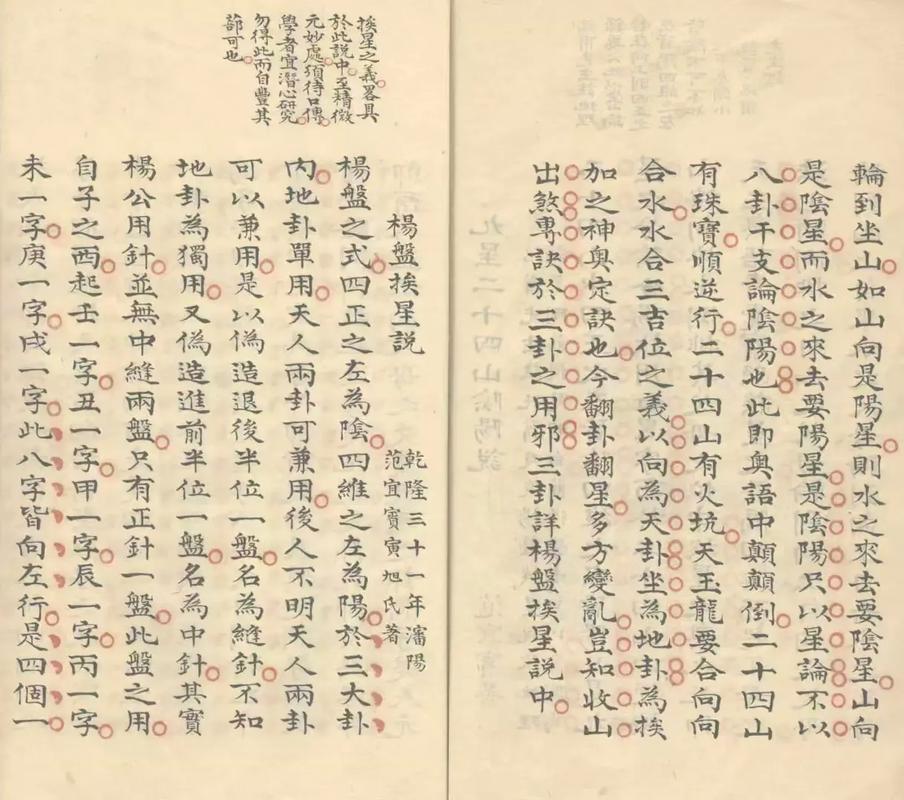 輪到坐山如山向是陽星則水之來去要陰星山向
是陰星而水之來去要陽星是陰陽只以星論不以
八卦干支論陰陽也此即奧語中顛顛倒二十四山
有珠寶順逆行二十四山有火坑天玉龍要合向向
合水水合三吉位之義以向為天卦坐為地卦為挨
加之神奧定訣也今翻卦翻星多方變亂豈知收山
出煞專訣於三卦之用邪三卦詳楊盤挨星說中
挨星之義畧具
於此說中至精微
元妙處須待口傳
學者宜潛心研究
勿得此而自豐其
蔀可也
楊盤挨星說
乾隆三十一年瀋陽
范宜賓寅旭氏著
楊盤之式四正之左為陰四維之左為陽於三大卦
內地卦單用天人兩卦可兼用後人不明天人兩卦
可以兼用是以偽造退後半位一盤名為縫針不知
地卦為獨用又偽造進前半位一盤名為中針其實
楊公用針並無中縫兩盤只有正針一盤此盤之用
自子之西起壬一字丑一字甲一字辰一字丙一字
未一字庚一字戌一字此八字皆向左行是四個一